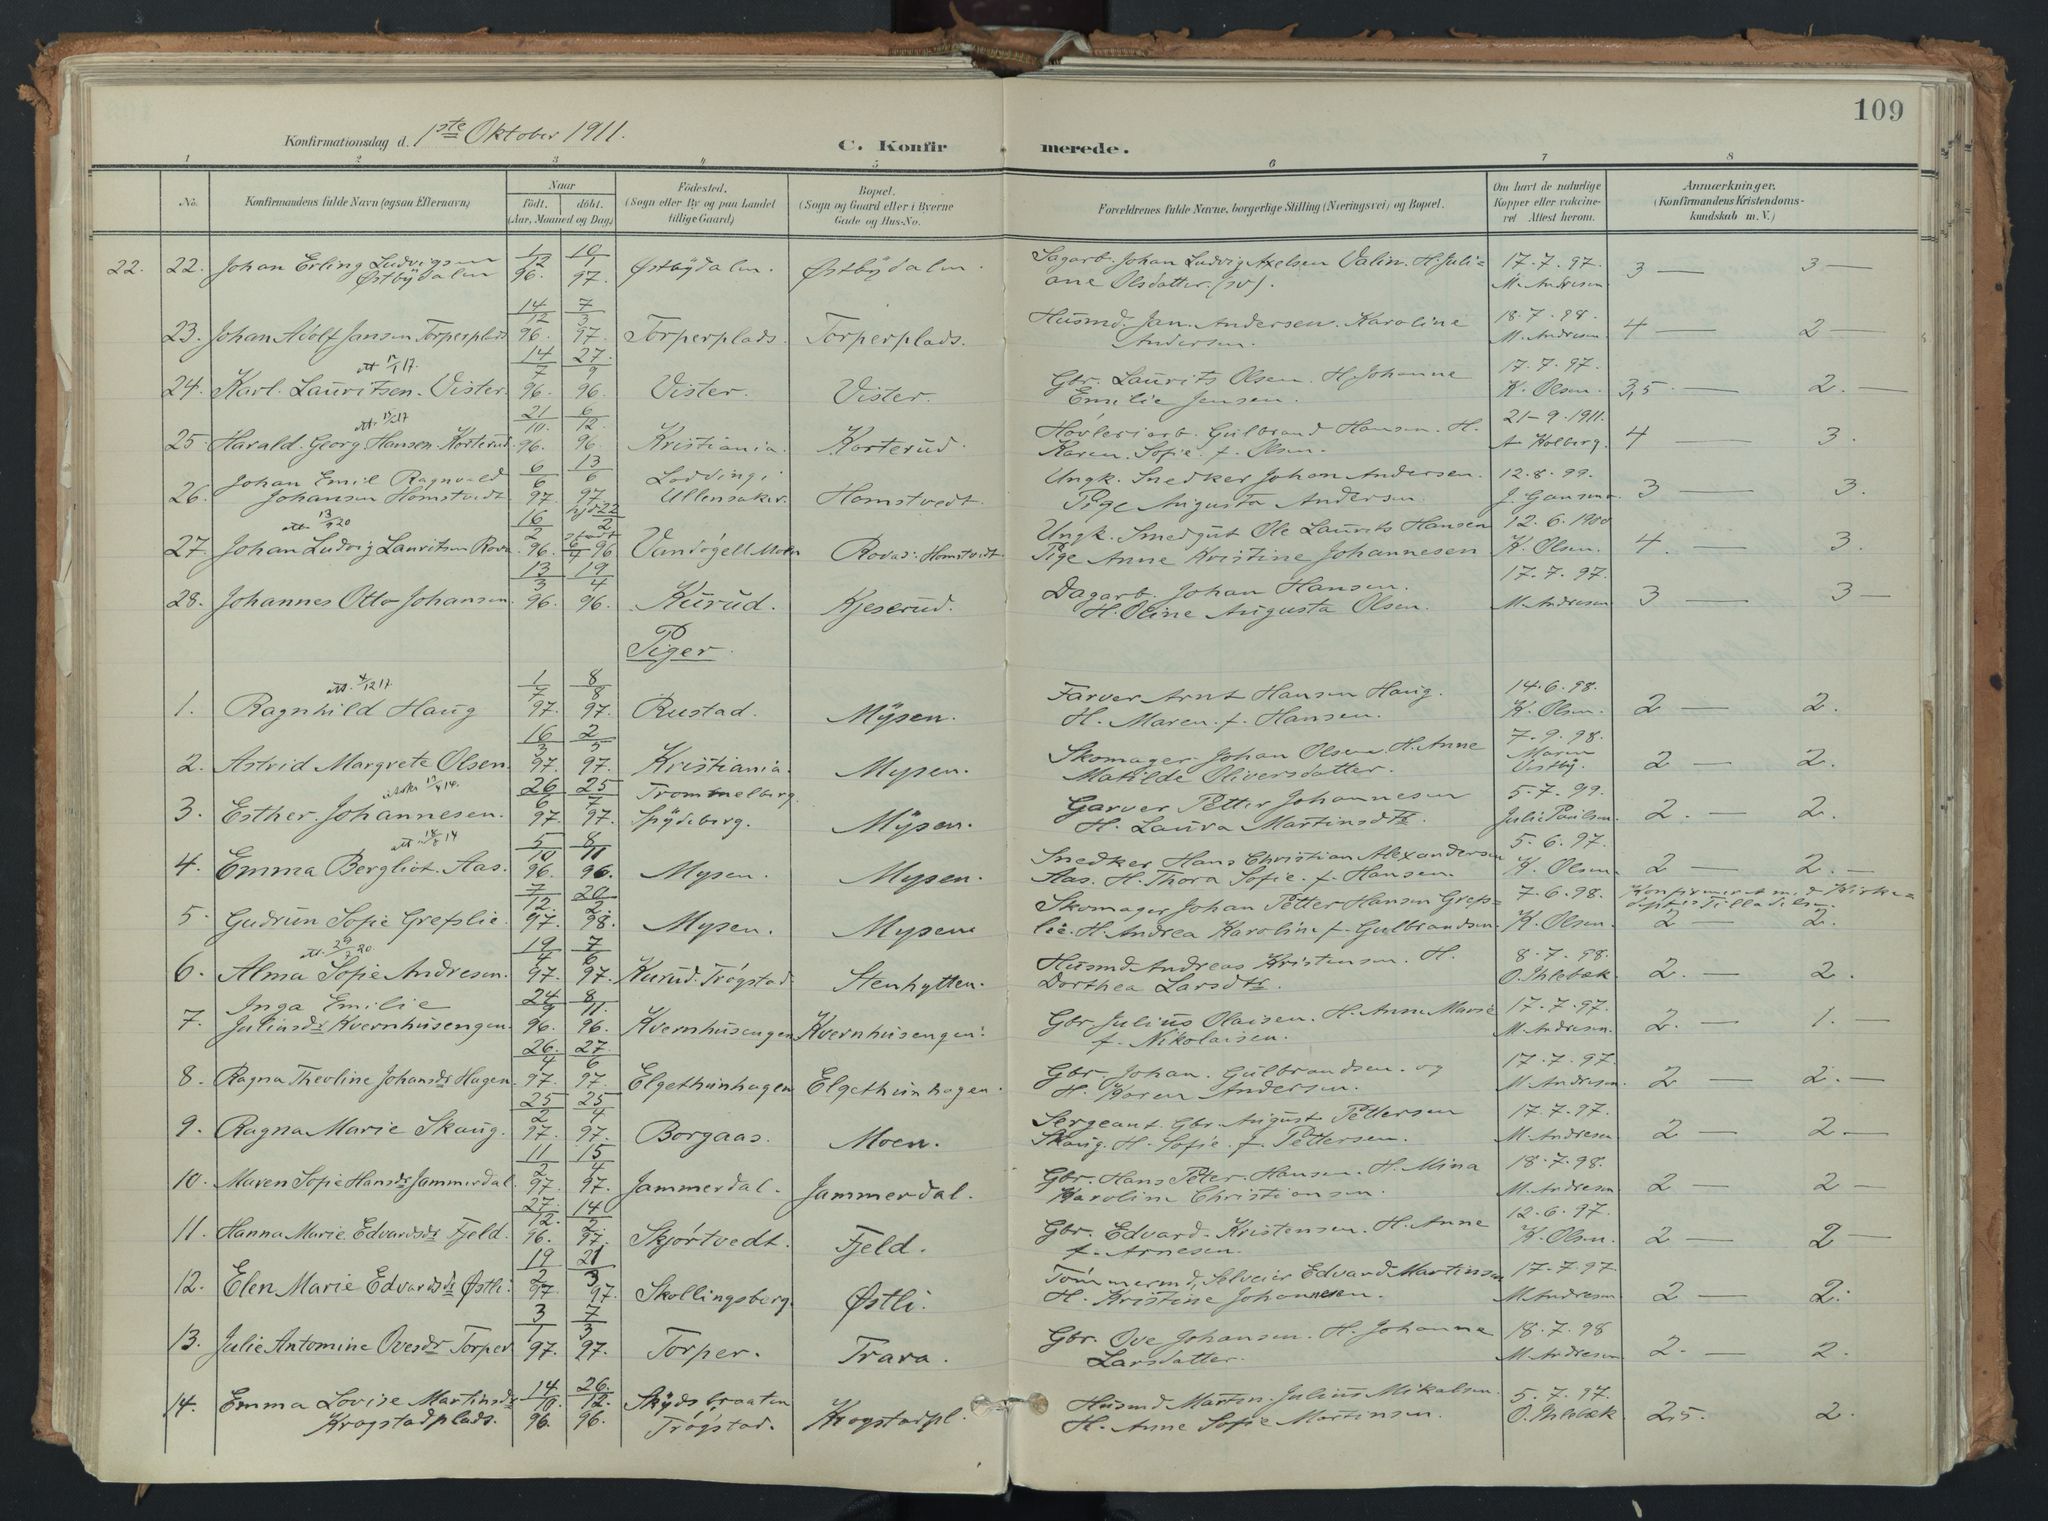 109
Konfirmationsdag d. 1ste Oktober 1911.
C. Konfirmerede.
1 2 3 4 5 6 7 8
No. Konfirmandens fulde Navn (ogsaa Efternavn) Naar født. døbt. (Aar, Maaned og Dag) Fødested. (Sogn eller By og paa Landet tillige Gaard) Bopæl. (Sogn og Gaard eller i Byerne Gade og Hus-No. Forældrenes fulde Navne, borgerlige Stilling (Næringsvei) og Bopæl. Om havt de naturlige Kopper eller vakcineret Attest herom. Anmærkninger. (Konfirmandens Kristendomskundskab m. V.)
22. 22. Johan Erling Ludvigsen Østbydalen 1/12 96. 10/1 97. Østbydalen. Østbydalen Sagarb. Johan Ludvig Axelsen Valin. H. Juliane Olsdatter. (sv). 17.7.97. M. Andresen 3 — 3 —
23. Johan Adolf Jansen Torperplads 14/12 96. 7/3 97. Torperplads. Torperplads. Husmd. Jan Andersen. Karoline Andersen. 18.7.98. M. Andresen 4 — 2 —
24. Karl Lauritsen Vister. 14/7 96. 27/9 96. Vister. Vister. Gbr. Laurits Olsen. H. Johanne Emilie Jensen. 17.7.97. K. Olsen. 3,5 — 2. —
25. Harald Georg Hansen Korterud 21/10. 96. 6/12. 96. Kristiania. Korterud. Høvleriarb. Gulbrand Hansen. H. Karen Sofie f. Olsen. 21-9.1911. A Holberg. 4 — 3.
26. Johan Emil Ragnvald Johansen Homstvedt 6/6 97. 13/6 97. Ullensaker. Homstvedt. Ungk. Snedker Johan Andersen. Pige Augusta Andersen. 12.8.99. 3 — 3.
27. Johan Ludvig Lauritsen Rova att. 13/9 20 16/2 96. hjd 22/2 stadf 6/4 96 Rovas: Homstvedt. Ungk. Smedgut Ole Laurits Hansen Pige Anne Kristine Johannesen 12.6.1900 K. Olsen. 4. — 3.
28. Johannes Otto Johansen 13/3 96. 19/4 96. Kurud. Kjeserud. Dagarb. Johan Hansen. H. Oline Augusta Olsen. 17.7.97. M. Andresen 3 — 3 —
Piger.
1. Ragnhild Haug att. 4/12 17. 1/7 97. 8/8 97. Rustad. Mysen. Farver Arnt Hansen Haug. H. Maren f. Hansen. 14.6.98. K. Olsen 2 — 2.
2. Astrid Margrete Olsen. 16/3 97. 2/5 97. Kristiania. Mysen. Skomager Johan Olsen. H. Anne Matilde Oliversdatter. 7.9.98. Maren Vestby. 2 — 2.
3. Esther Johannesen. 26/6 97. 25/7 97. Trommelberg. Spydeberg. Mysen. Garver Petter Johannesen H. Laura Martinsdtr. 5.7.99. Julie Paulsen. 2. — 2.
4. Emma Bergliot Aas. 5/10 96. 8/11 96. Mysen. Mysen. Snedker Hans Christian Alexandersen Aas. H. Thora Sofie f. Hansen. 5.6.97. K. Olsen 2 — 2. —
5. Gudrun Sofie Grefslie. 7/12. 97. 20/2. 98. Mysen. Mysen Skomager Johan Petter Hansen Grefslie. H. Andrea Karoline f. Gulbrandsen. 7.6.98. K. Olsen. Konfirmert med Kirkedepts Tilladelse. 2 — 2.
6. Alma Sofie Andresen. att. 29/7 20. 19/4 97. 7/6 97. Kurud. Trøgstad Stenhytten. Husmd Andreas Kristensen. H. Dorthea Larsdtr. 8.7.98. O. Ihlebæk 2. — 2.
7. Inga Emilie Juliusdr Kvernhusengen. 24/9 96. 8/11. 96. Kvernhusengen Kvernhusengen. Gbr Julius Olaisen. H. Anne Marie f. Nikolaisen. 17.7.97. M. Andresen. 2. — 1. —
8. Ragna Theoline Johansdr Hagen. 26./4 97. 27./6 97. Elgethunhagen Elgethunhagen. Gbr. Johan Gulbrandsen og H. Karen Andersen. 17.7.97. M. Andresen. 2 — 2. —
9. Ragna Marie Skaug. 25/2 97. 25/4 97. Borgaas. Moen. Sergeant. Gbr. August Pettersen Skaug. H. Sofie f. Pettersen. 17.7.97. M. Andresen 2 — 2 —
10. Maren Sofie Hansdr Jammerdal. 11/2 97. 15/4 97. Jammerdal. Jammerdal. Gbr. Hans Peter Hansen. H. Mina Karoline Christiansen. 18.7.98. M. Andresen 2 — 2 —
11. Hanna Marie Edvardsdr Fjeld. 27/12. 96. 14/2 97. Skjørtvedt. Fjeld. Gbr. Edvard Kristensen. H. Anne f. Arnesen. 12.6.97. K. Olsen. 2 — 2 —
12. Elen Marie Edvardsdr Østli. 19/2 97. 21/3 97. Skollingsberg. Østli. Tømmermd, Selveier Edvard Martinsen H. Kristine Johannesen. 17.7.97. M. Andresen 2 — 2.
13. Julie Antomine Ovesdr Torper 3/1 97. 7/3 97. Torper. Trara. Gbr. Ove Johansen. H. Johanne Larsdatter. 18.7.98 M. Andresen 2. — 2.
14. Emma Lovise Martinsdr Krogstadplads. 14/10. 96. 26./12. 96. Skydsbraaten Trøgstad. Krogstadpl. Husmd Martin Julius Mikalsen. H. Anne Sofie Martinsen. 5.7.97. O. Ihlebæk. 2,5. — 2.